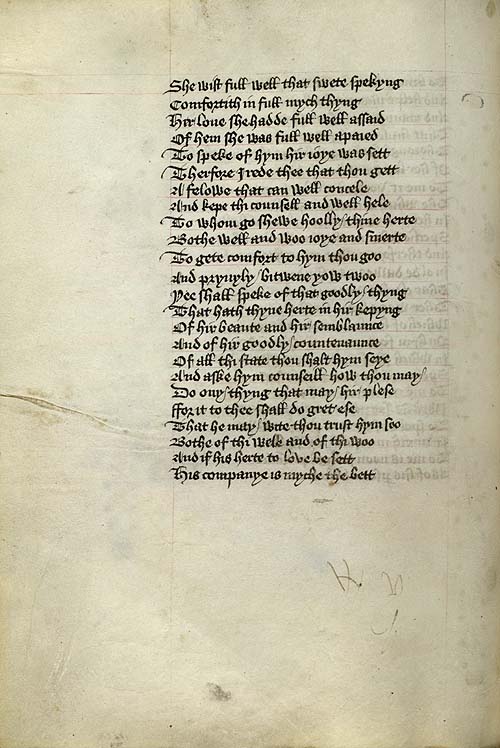 She wist full well that swete spekyng
Comfortith in full mych thyng
Hir loue she hadde full well assaid
Of hem she was full well apaied
To speke of hym hir ioye was sett
Therfore I rede thee that thou gett
A felowe that can well concele
And kepe thi counsell and well hele
To whom go shewe hoolly/ thine herte
Bothe well and woo ioye and smerte
To gete comfort to hym thou goo
And pryuyly/ bitwene yow twoo
Yee shall speke of that goodly/ thyng
That hath thyne herte in hir kepyng
Of hir beaute and hir semblaunce
And of hir goodly/ countenaunce
Of all thi state thou shalt hym seye
And aske hym counseill how thou may/
Do ony/ thyng that may/ hir plese
ffor it to thee shall do gret ese
That he may/ wite thou trust hym soo
Bothe of thi wele and of thi woo
And if his herte to love be sett
His companye is myche the bett